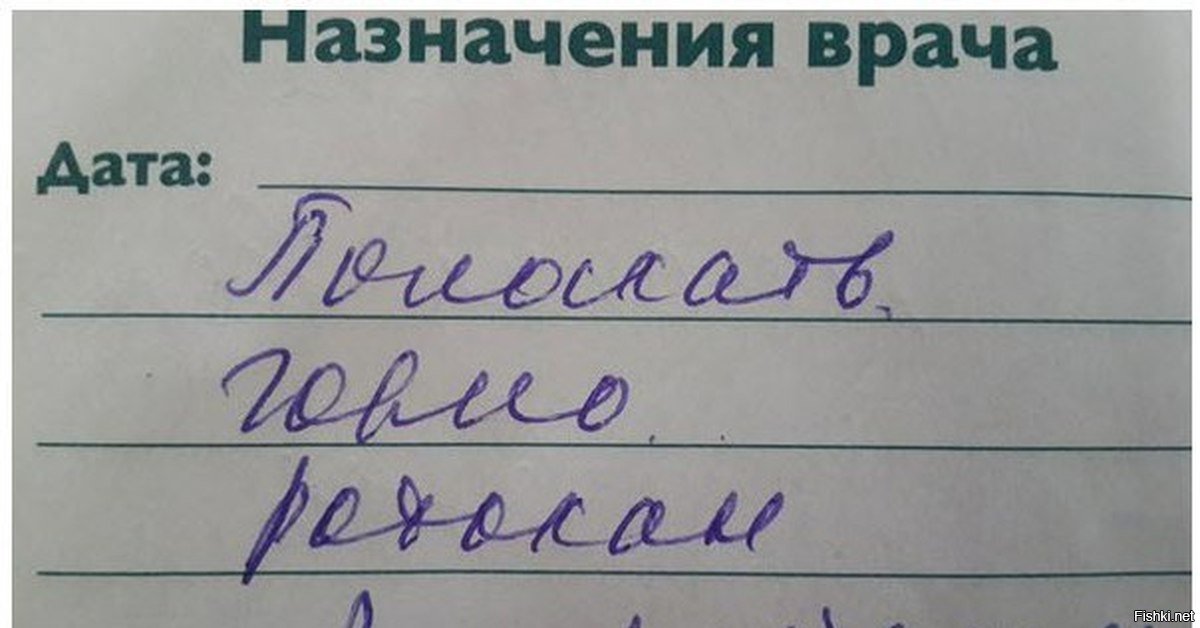 Назначения врача
Дата:
Полоскать
горло
ротокан
Fishki.net